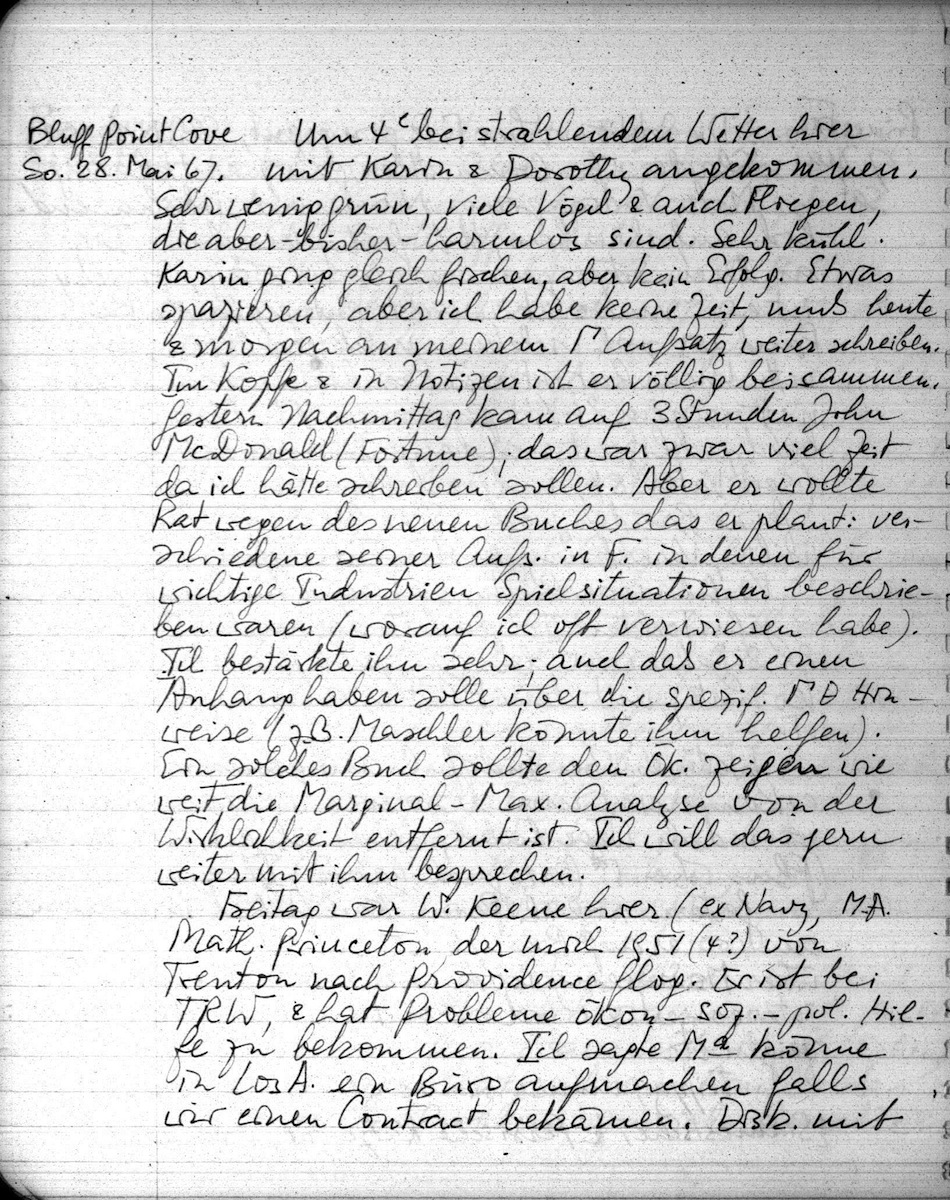 Bluff Point Cove Um 4ʰ bei strahlendem Wetter hier
So. 28. Mai 67. mit Karin & Dorothy angekommen.
Sehr wenig grün, viele Vögel & auch Fliegen,
die aber - bisher - harmlos sind. Sehr kühl.
Karin ging gleich fischen, aber kein Erfolg. Etwas
spazieren, aber ich habe keine Zeit, muß heute
& morgen an meinem Γ Aufsatz weiter schreiben.
Im Kopfe & in Notizen ist er völlig beisammen.
Gestern Nachmittag kam auf 3 Stunden John
McDonald (Fortune); das war zwar viel Zeit
da ich hätte schreiben sollen. Aber er wollte
Rat wegen des neuen Buches das er plant: ver-
schiedene seiner Aufs. in F. in denen für
wichtige Industrien Spielsituationen beschrie-
ben waren (worauf ich oft verwiesen habe).
Ich bestärkte ihn sehr; auch daß er einen
Anhang haben solle über die spezif. Γ Θ Hin-
weise (z.B. Maschler könnte ihm helfen).
Ein solches Buch sollte den Ök. zeigen wie
weit die Marginal-Max. Analyse von der
Wirklichkeit entfernt ist. Ich will das gern
weiter mit ihm besprechen.
Freitag war W. Keene hier (ex Navy, M.A.
Math. Princeton, der mich 1951 (4?) von
Trenton nach Providence flog. Er ist bei
TRW, & hat Probleme ökon.- soz.- pol. Hil-
fe zu bekommen. Ich sagte Mᵃ könne
in Los A. ein Büro aufmachen falls
wir einen Contract bekämen. Disk. mit